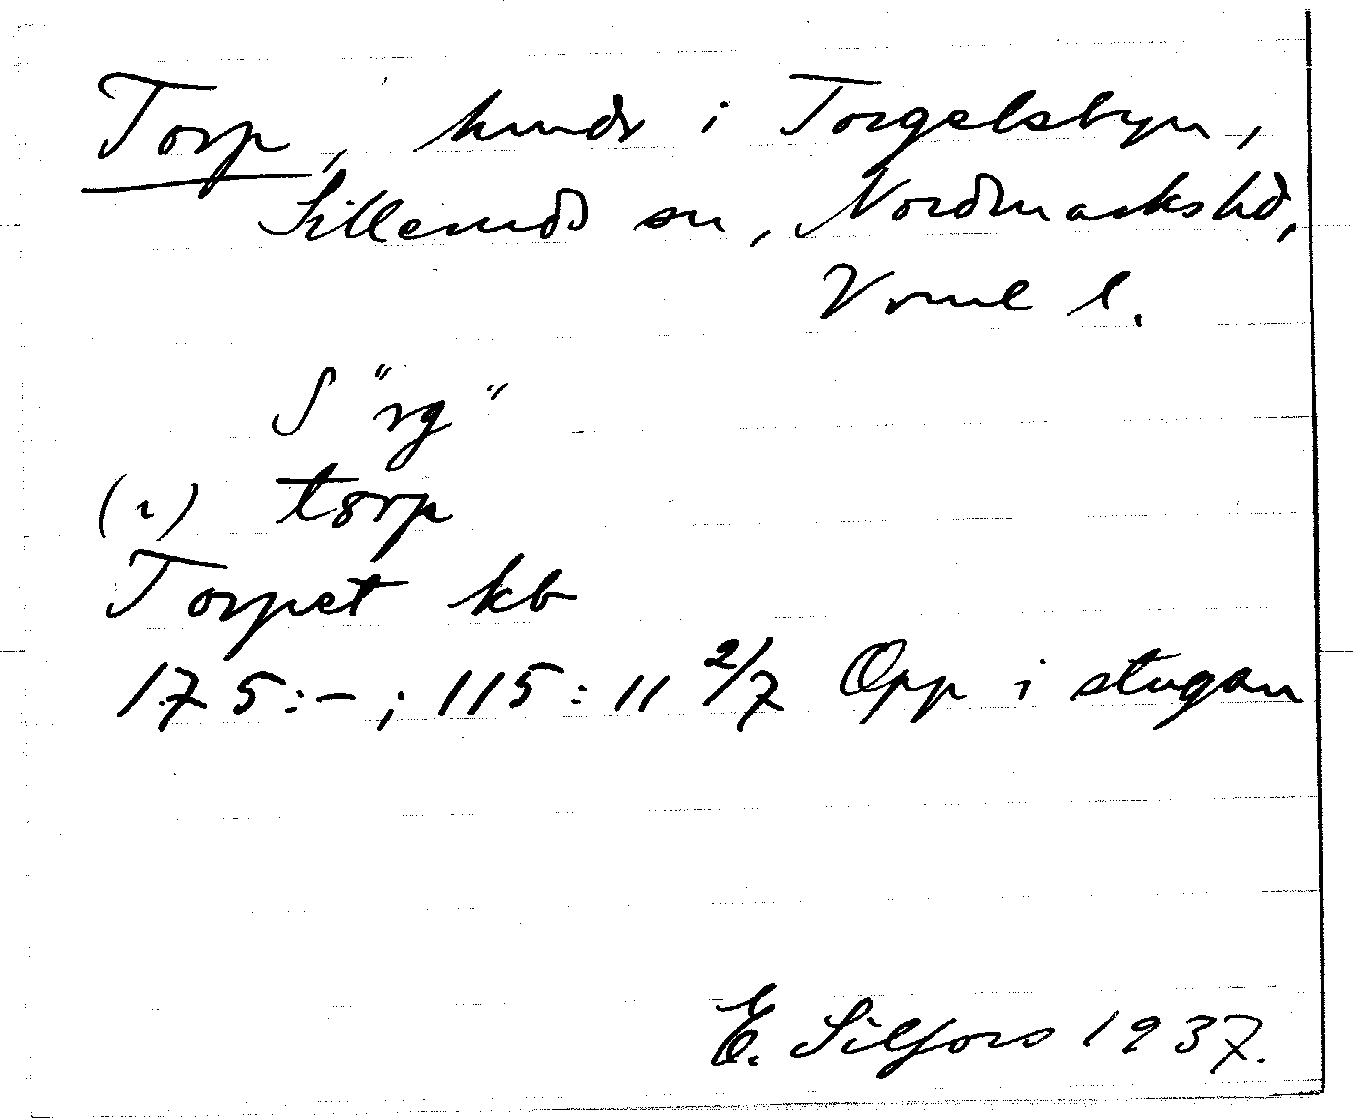 Torp, hmdr i Torgelsbyn,
Sillerudds sn, Nordmarks hd,
Vrml l.
S "rg"
(i) tørp
Torpet kb
175:-; 115:11 2/7 Opp i stugan
E. Silfors 1937.